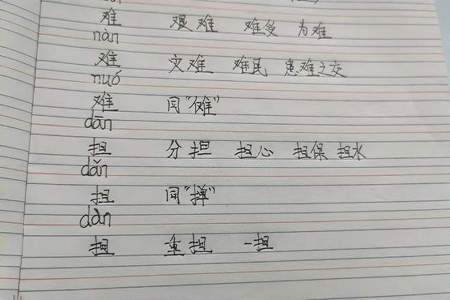 难 艰难 难受 为难
nàn
难 灾难 难民 患难之交
nuó
难 同“傩”
dān
担 分担 担心 担保 担水
dǎn
担 同“掸”
dàn
担 重担 一担